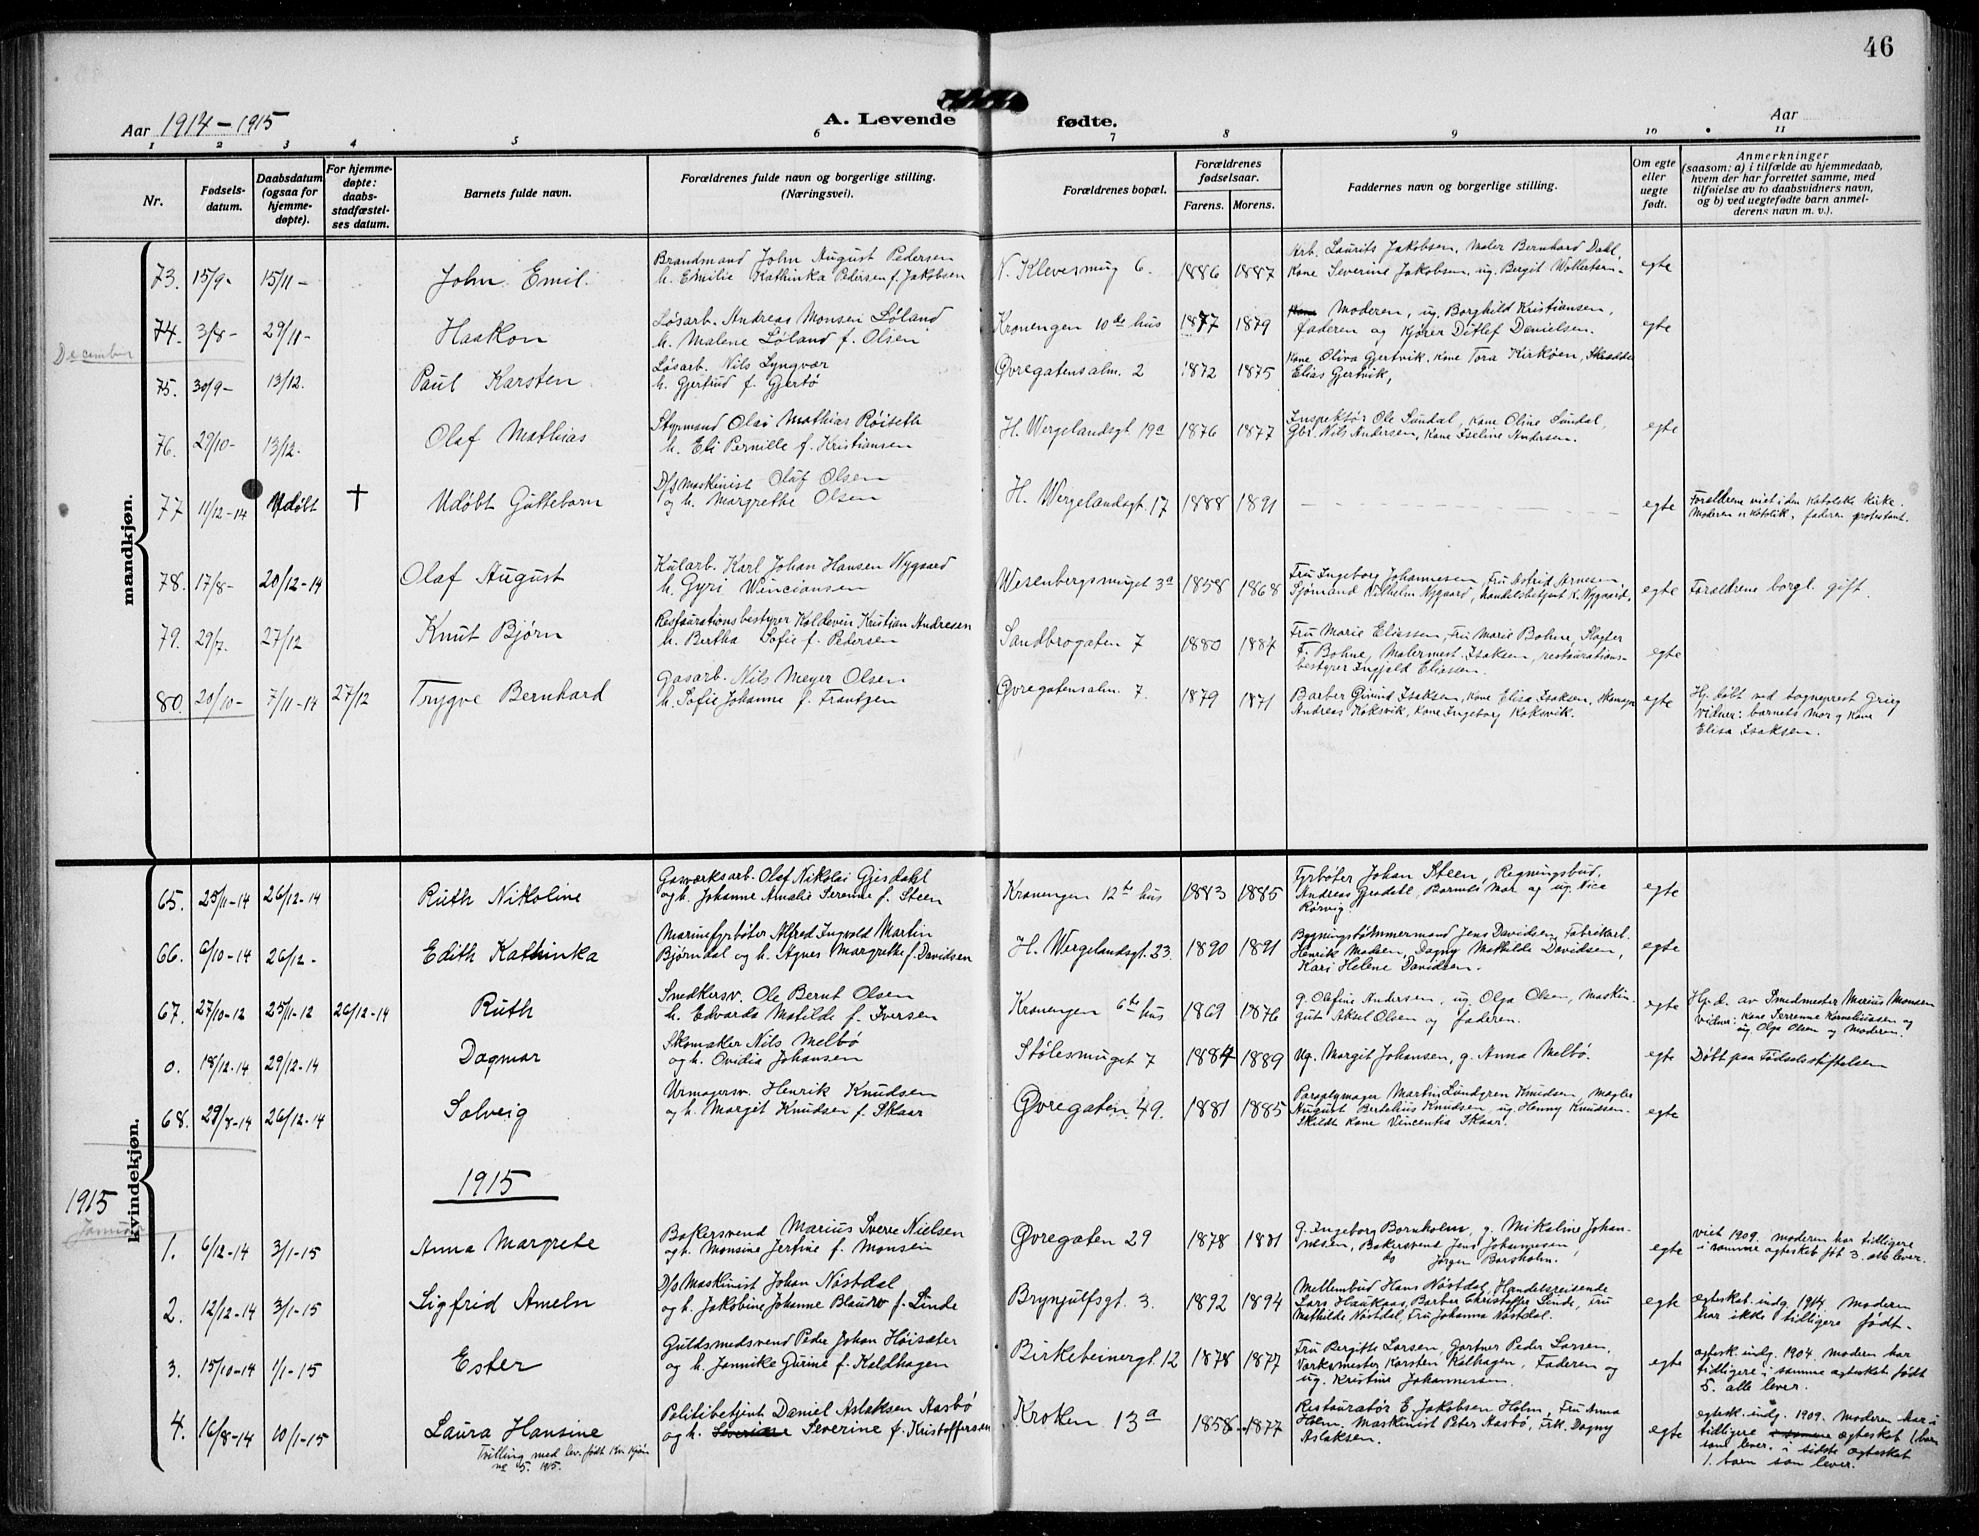 46
Aar 1914-1915
A. Levende fødte.
Aar
1 2 3 4 5 6 7 8 9 10 11
Nr.
Fødsels-
datum.
Daabsdatum
(ogsaa for
hjemme-
døpte).
For hjemme-
døpte:
daabs-
stadfæstel-
ses datum.
Barnets fulde navn.
Forældrenes fulde navn og borgerlige stilling.
(Næringsvei).
Forældrenes bopæl.
Forældrenes
fødselsaar.
Farens. Morens.
Faddernes navn og borgerlige stilling.
Om egte
eller
uegte
født.
Anmerkninger
(saasom: a) i tilfælde av hjemmedaab,
hvem der har forrettet samme, med
tilføielse av to daabsvidners navn,
og b) ved uegtefødte barn anmel-
derens navn m. v.).
mandkjøn.
73. 15/9- 15/11- John Emil
Brandmand John August Pedersen
h. Emilie Kathinka Pedersen f. Jakobsen
N. Klevesmug 6. 1886 1887
Arb. Laurits Jakobsen, Maler Bernhard Dahl,
Kone Severine Jakobsen, ug. Bergit
egte
74. 3/8- 29/11- Haakon
Løsarb. Andreas Monsen Løland
h. Malene Løland f. Olsen
Kronengen 10de hus 1877 1879
Moderen, ug. Borghild Kristiansen,
faderen og Kjører Ditlef Danielsen.
egte
December
75. 30/9- 13/12. Paul Karsten
Løsarb. Nils Lyngvær
h. Gjertrud f. Gjertø
Øvregatensalm. 2 1872 1875
Kone Oliva Gjertvik, Kone Tora Kirkøen,
Elias Gjertvik,
76. 29/10- 13/12. Olaf Mathias
Styrmand Olai Mathias Røiseth
h. Eli Pernille f. Kristiansen
H. Wergelandsgt. 19a 1876 1877
Inspektør Ole Sundal, Kone Oline Sundal,
Gbr. Nils Andersen, Kone Iseline Andersen.
egte
77 11/12-14 Udøbt † Udøbt Guttebarn
D/s Maskinist Olaf Olsen
og h. Margrethe Olsen
H. Wergelandsgt. 17 1888 1891
egte
Forældrene viet i den Katolske Kirke.
Moderen er Katolik, faderen protestant.
78. 17/8- 20/12-14 Olaf August
Kularb. Karl Johan Hansen Nygaard
h. Gyri Winciansen
Wesenbergsmuget 3a 1858 1868
Fru Ingeborg Johannesen, Fru Astrid Arnesen,
Sjømand Wilhelm Nygaard, handelsbetjent K. Nygaard,
egte
Forældrene borgl. gift.
79. 29/7. 27/12 Knut Bjørn
Restaurationsbestyrer Koldevin Kristian Andresen
h. Bertha Sofie f. Pedersen
Sandbrogaten 7 1880 1884
Fru Marie Eliassen, Fru Marie Bohne, Slagter
F. Bohne, Malermest. Isaksen, restaurations-
bestyrer Ingjald Eliassen.
egte
80. 20/10- 7/11-14 27/12 Trygve Bernhard
Gasarb. Nils Meyer Olsen
h. Sofie Johanne f. Frantzen
Øvregatensalm. 7. 1879 1871
Barber Isaksen, Kone Elisa Isaksen, Skomager
Andreas Koksvik, Kone Ingeborg Koksvik.
egte
Hj. døbt ved Sogneprest Grieg
Vidner: barnets Mor og Kone
Elisa Isaksen.
kvindekjøn.
65. 25/11-14 26/12-14 Ruth Nikoline
Gasværksarb. Olaf Nikolai Gjesdahl
og h. Johanne Amalie Serenne f. Steen
Kronengen 12te hus 1883 1885
Fyrbøter Johan Steen, Regningsbud.
Andreas Gjesdahl, Barnets Mor og ug.
Rørvig.
egte
66. 6/10-14 26/12- Edith Kathinka
Marinefyrbøter Alfred Ingvald Martin
Bjørndal og h. Agnes Margrethe f. Davidsen
H. Wergelandsgt. 23. 1890 1891
Bygningstømmermand Jens Davidsen, Fabrikarb.
Henrik Madsen, Dagny Mathilde Davidsen,
Kari Helene Davidsen.
egte
67. 27/10-12 25/11-12 26/12-14 Ruth
Snedkersv. Ole Bernt Olsen
h. Edvarda Matilde f. Iversen
Kronengen 6te hus 1869 1876
g. Olafine Andersen, ug. Olga Olsen, maskin-
gut Aksel Olsen og faderen.
egte
Hj.d. av Smedmester Marius Monsen
Vidner: Kone Serenne Korneliussen og
ug. Olga Olsen og Moderen.
0. 18/12-14 29/12-14 Dagmar
Skomaker Nils Melbø
og h. Ovidia Johansen
Stølesmuget 7 1884 1889
Ug. Margit Johansen, g. Anna Melbø.
egte
Døbt paa Fødselsstiftelsen
68. 29/8-14 26/12-14 Solveig
Urmagersv. Henrik Knudsen
og h. Margit Knudsen f. Skaar
Øvregaten 49. 1881 1885
Paraplymager Martin Lundgren Knudsen, Mægler
August Bertelius Knudsen, ug. Henny Knudsen.
Skildt Kone Vincentia Skaar.
egte
1915
1915
Januar
1. 6/12-14 3/1-15 Anna Margrete
Bakersvend Marius Sverre Nielsen
og h. Monsine Jertine f. Monsen
Øvregaten 29 1878 1881
G. Ingeborg Bornholm, g. Mikaline Johan-
nesen, Bakersvend Jens Johannesen,
ds Jørgen Borsholm.
egte
viet 1909. moderen har tidligere
i samme egteskab født 3. alle lever.
2. 12/12-14 3/1-15 Sigfrid Ameln
D/s Maskinist Johan Nøstdal
og h. Jakobine Johanne Blauuw f. Linde
Brynjulfsgt. 3. 1892 1894
Mellembud Hans Nøstdal, Handelsreisende
Lars Haukaas, Barber Christoffer Linde, Fru
Mathilde Nøstdal, Fru Johanna Nøstdal.
egte
egtesk. indg. 1914 moderen
har ikke tidligere født.
3. 15/10-14 1/1-15 Ester
Guldsmedsvend Peder Johan Høisæter
og h. Jannike Gurine f. Kaldhagen
Birkebeinergt. 12 1878 1877
Fru Bergitte Larsen, Gartner Peder Larsen,
Værksmester Karsten Kalhagen, Faderen og
ug. Kristine Johannessen.
egte
egtesk. indg. 1904. moderen har
tidligere i samme egteskab født
5. alle lever.
4. 16/8-14 10/1-15 Laura Hansine
Tvilling med lev. født Mn. Kjøn
no 5. 1915.
Politibetjent Daniel Aslaksen Aasbø
og h. Severine Severine f. Kristoffersen
Kroken 13a 1858 1877
Restauratør E. Jakobsen Holm, Fru Anna
Holm, Maskinist Peter Aasbø, Frk. Dagny
Aslaksen.
egte
egtesk. indg. 1909. moderen har i
tidligere i samme egteskab 1 barn
som lever. i sidste egteskab
1. barn som lever.